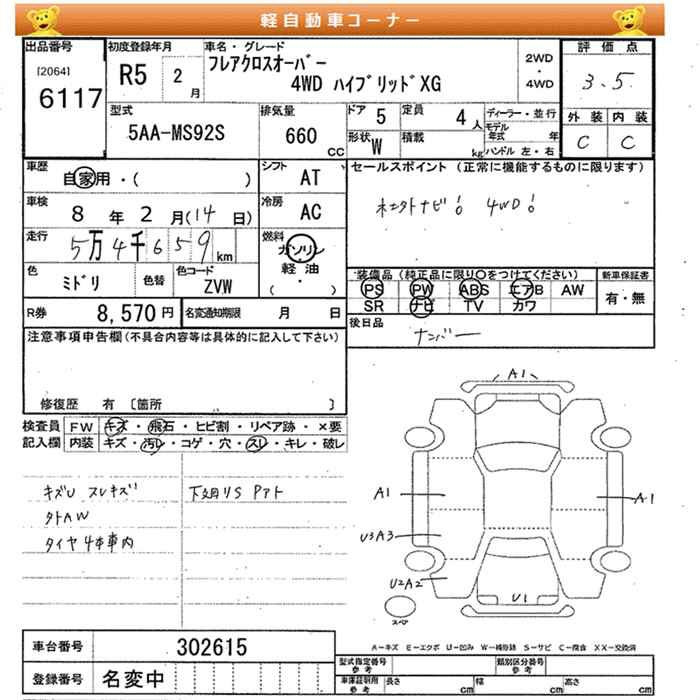 軽自動車コーナー
出品番号
[2064]
6117
初度登録年月
R5 2 月
車名・グレード
フレアクロスオーバー
4WD ハイブリッドXG
2WD
・
4WD
評価点
3.5
外装 内装
C C
型式
5AA-MS92S
排気量
660 CC
ドア 5
定員 4 人
形状 W
積載 kg
ディーラー・並行
モデル年式 年
ハンドル 左・右
車歴
自家用・( )
シフト
AT
セールスポイント (正常に機能するものに限ります)
車検
8 年 2 月(14 日)
冷房
AC
4WD!
走行
5万4千659 km
燃料
ガソリン
軽油
・
( )
色
ミドリ
色替
色コード
ZVW
装備品 (純正品に限り○をつけてください)
PS PW ABS エアB AW
SR ナビ TV カワ
新車保証書
有・無
R券 8,570 円
名変通知期限 月 日
後日品
ナンバー
注意事項申告欄(不具合内容等は具体的に記入して下さい)
修復歴 有 〔箇所 〕
検査員記入欄
FW キズ・飛石・ヒビ割・リペア跡・×要
内装 キズ・汚レ・コゲ・穴・スレ・キレ・破レ
キズU スレキズ
タイヤ4本車内
A1
A1
A1
U3A3
U2A2
U1
スペア
A=キズ E=エクボ U=凹み W=補修跡 S=サビ C=腐食 XX=交換済
車台番号 302615
登録番号 名変中
型式指定番号 参考
類別区分番号 参考
車庫証明用 参考
長さ cm
幅 cm
高さ cm